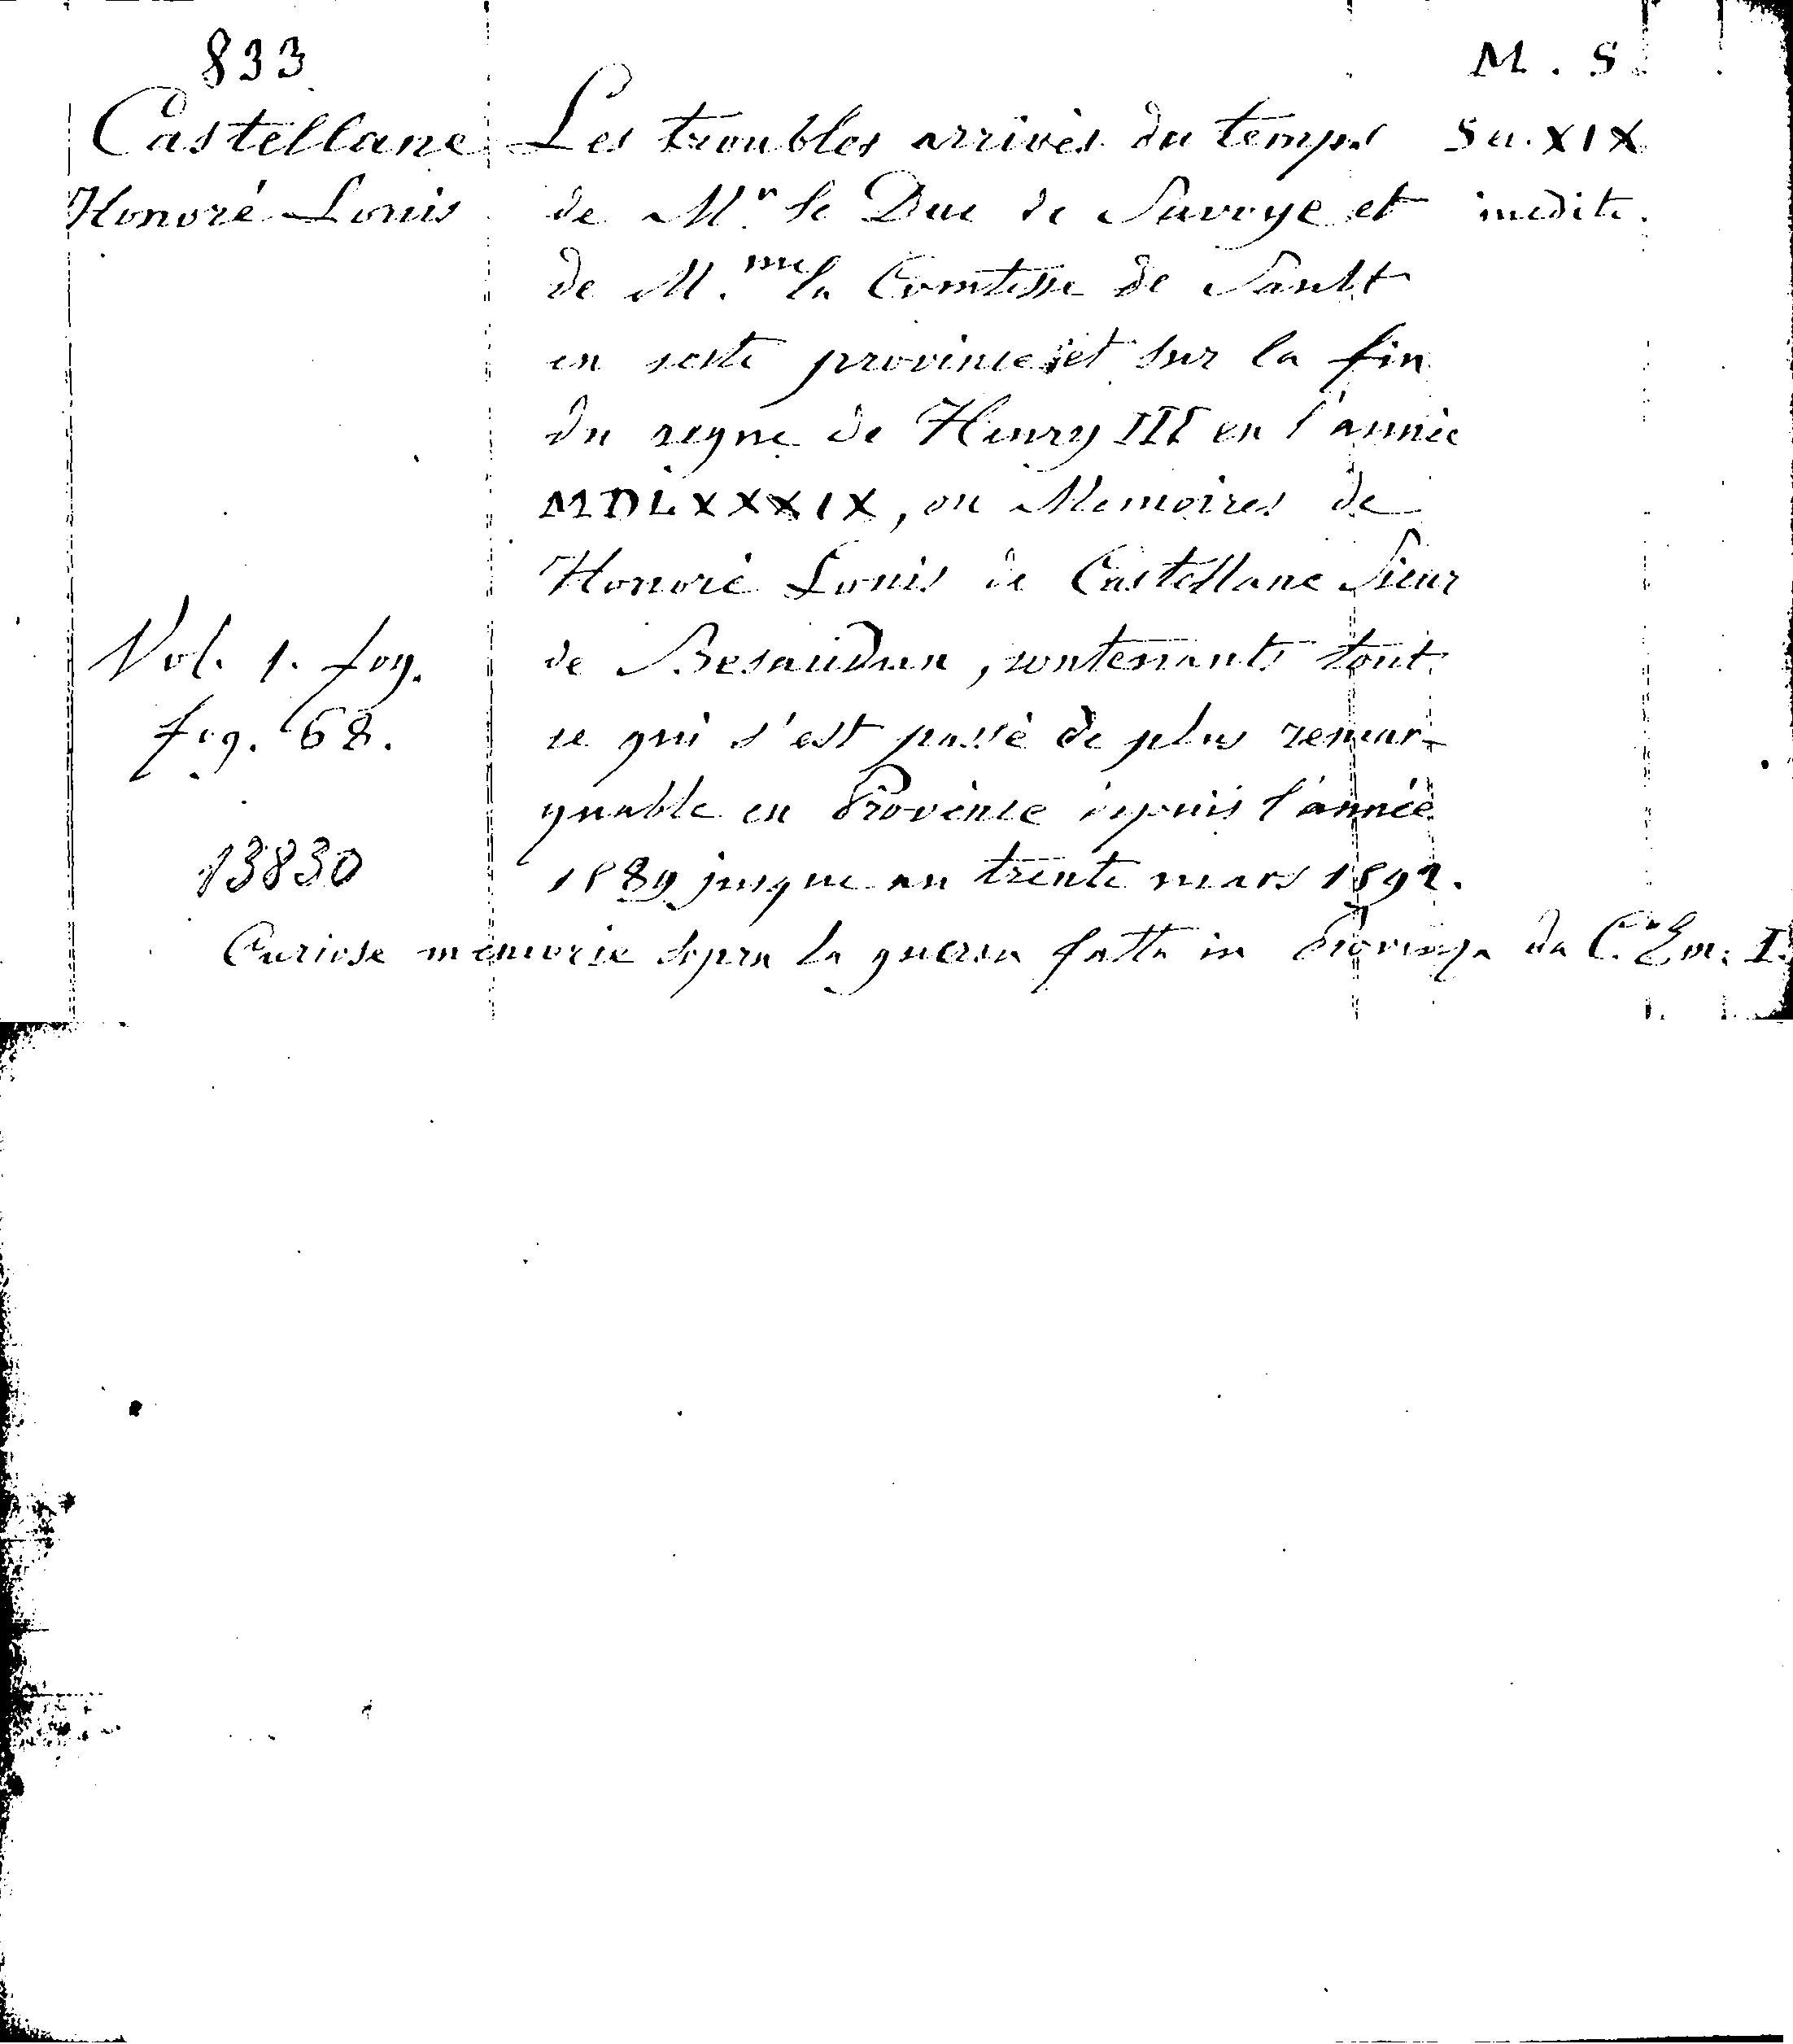 833
M. S.
Castellane
Honoré Louis
Les troubles arrivès du temps
de M.r le Duc de Savoye et
de M.me la Comtesse de Sault
en ceste province et sur la fin
du regne de Henry III en l'année
MDLXXXIX, ou Memoires de
Honoré Louis de Castellane Sieur
de Besaudun, contenants tout
ce qui s'est passè de plus remar-
quable en Provence depuis l'année
1589 jusque au trente mars 1592.
Sec. XIX
inedite.
Vol. 1. fog.
fog. 68.
13830
Curiose memorie sopra la guerra fatta in Provenza da C. Em. I.